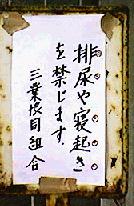 排尿や寝起き
を禁じます。
三業振同組合